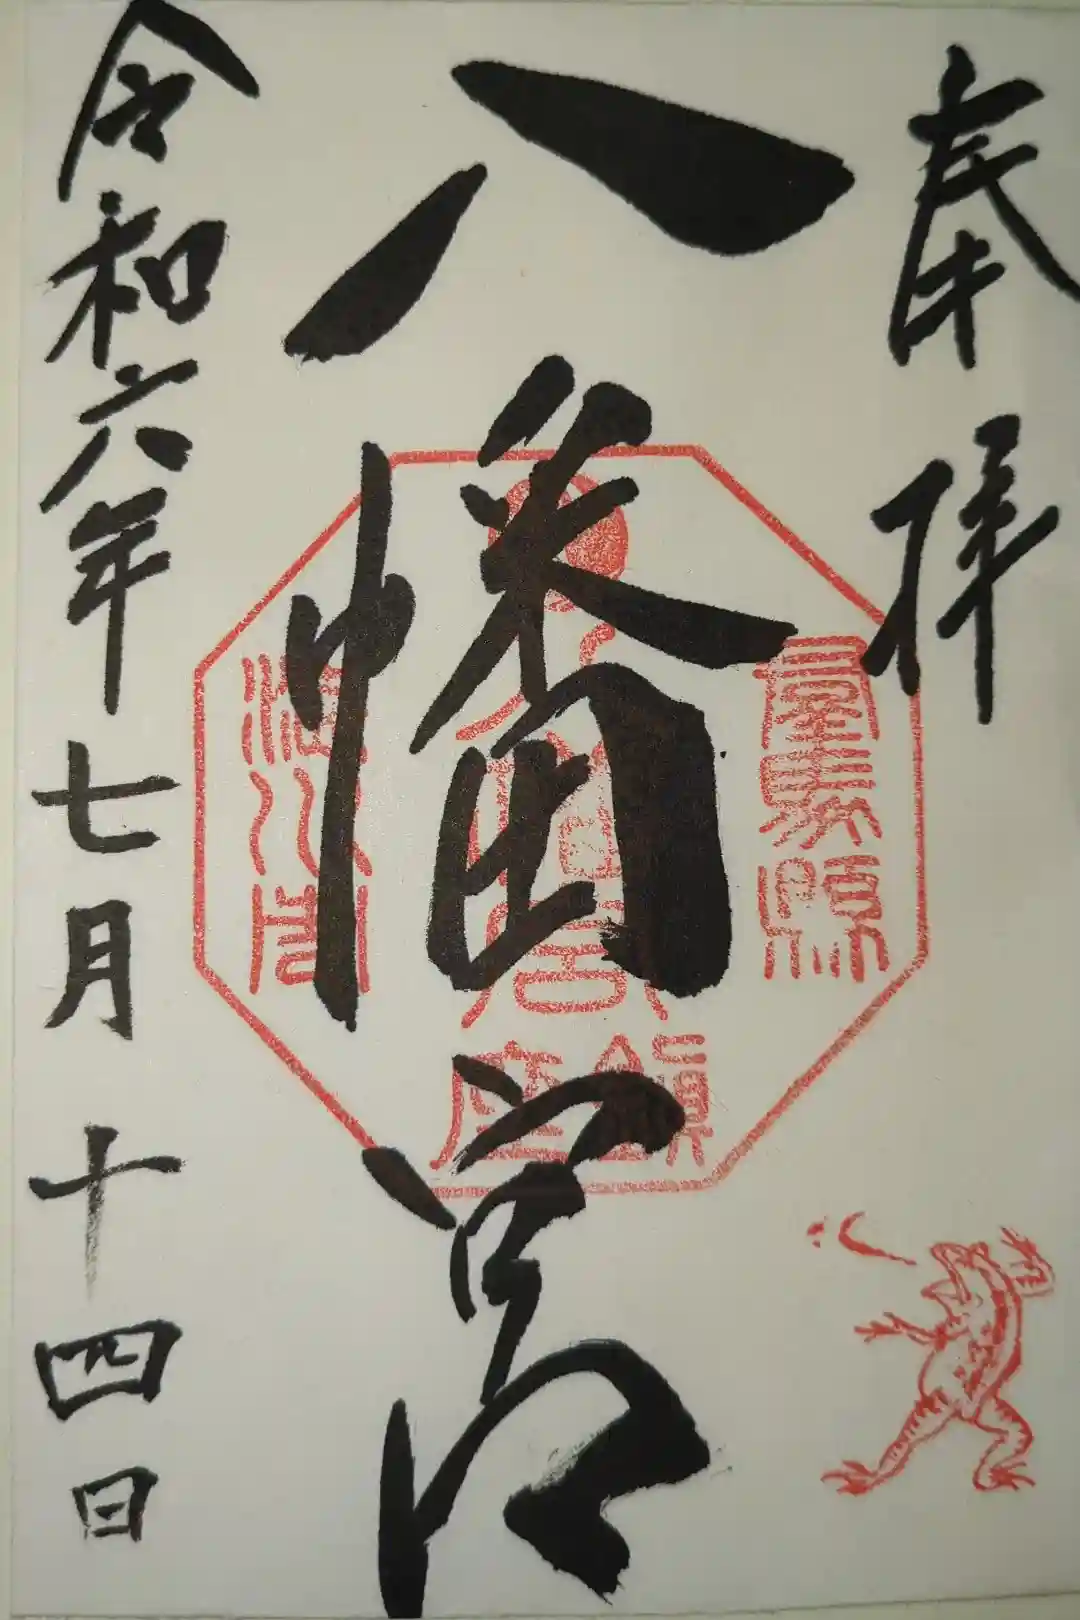 奉拝
八幡宮
鎮座
令和六年七月十四日